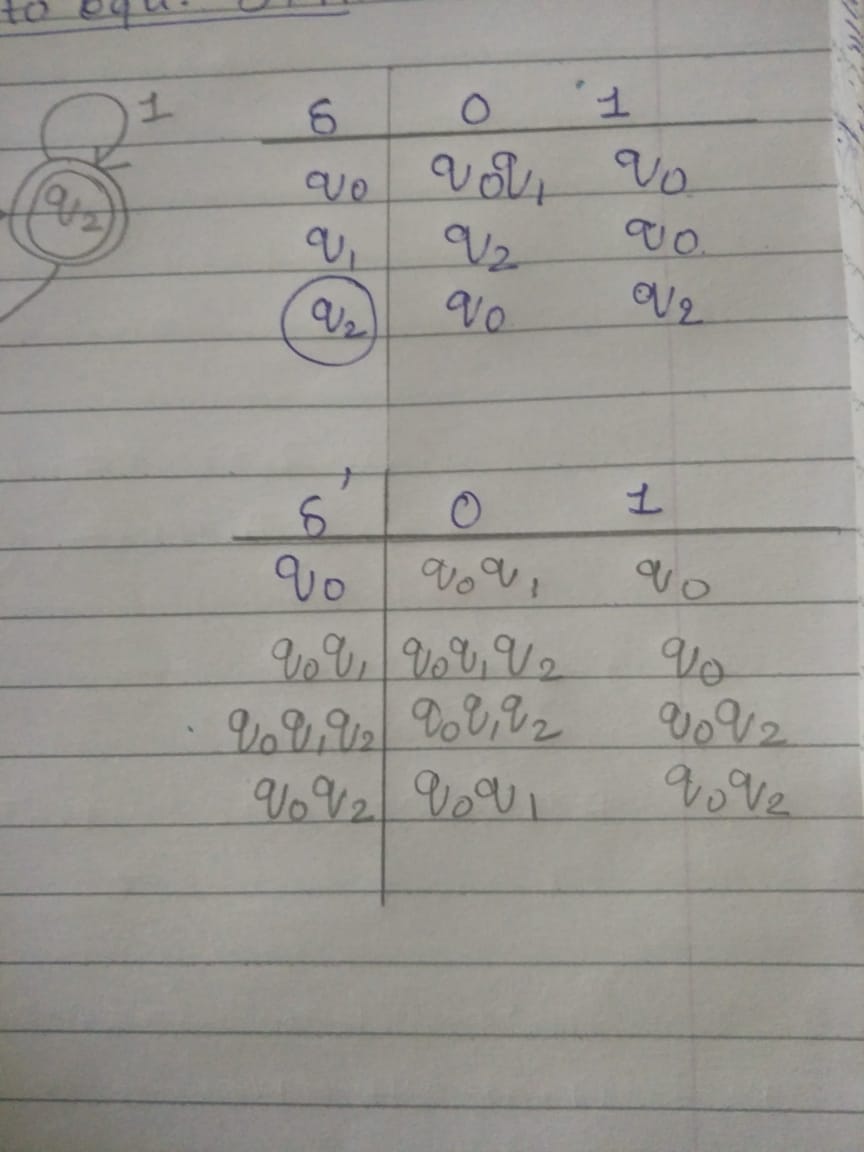 to equ.
1
q2
δ 0 1
q0 q0q1 q0
q1 q2 q0
q2 q0 q2
δ' 0 1
q0 q0q1 q0
q0q1 q0q1q2 q0
q0q1q2 q0q1q2 q0q2
q0q2 q0q1 q0q2